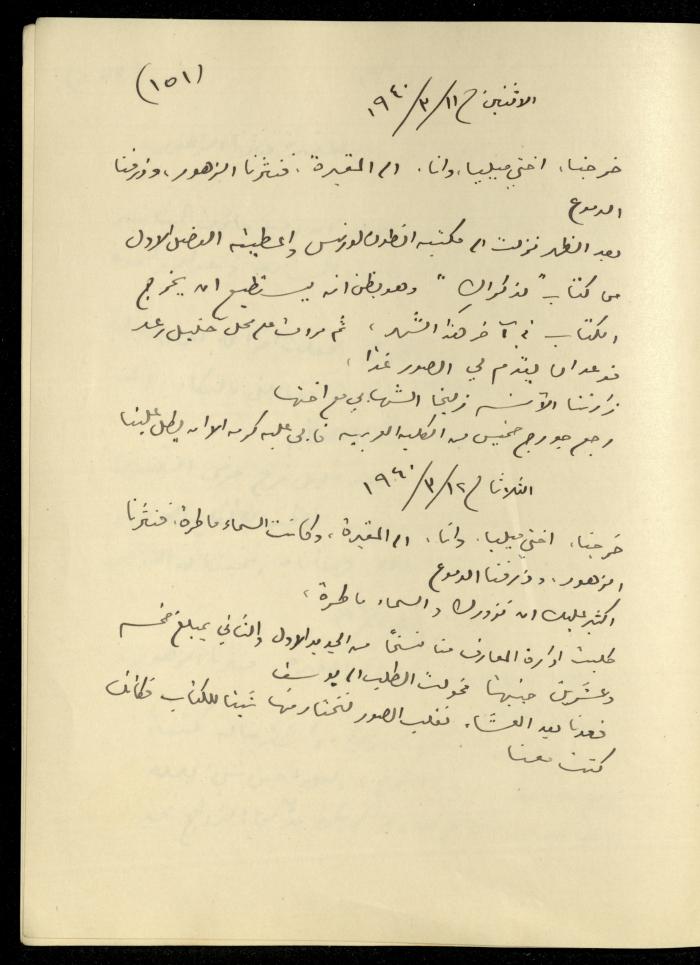 (١٥١)
الاثنين ١١/٣/١٩٤٠
خرجنا، اختي ميليا، وانا، الى المقبرة، فنثرنا الزهور، وذرفنا
الدموع
بعد الظهر نزلت الى مكتبه انطون لورنس واعطيته الفصل الاول
من كتاب "لذكراك" وهو يظن انه يستطيع ان يخرج
الكتاب في آخر هذا الشهر، ثم مررت على محل خليل رعد
فوعد ان يقدم لي الصور غدًا،
زارتنا الآنسه زليخا الشهابي مع اختها
رجع جورج خميس من الكليه العربيه فأبى عليه كرمه الا ان يطل علينا
الثلاثا ١٢/٣/١٩٤٠
خرجنا، اختي ميليا، وانا، الى المقبرة، وكانت السماء ماطرة، فنثرنا
الزهور، وذرفنا الدموع
اكثير عليك ان نزورك والسماء ماطرة،
طلبت ادارة المعارف منا نسخًا من الجديد الاول والثاني بمبلغ خمسه
وعشرين جنيهًا فحولت الطلب الى يوسف
قعدنا بعد العشاء نقلب الصور لنختار منها شيئا للكتاب فكأنك
كنت معنا